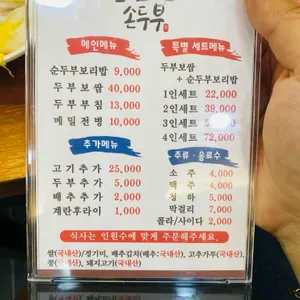 손두부
메인메뉴
순두부보리밥 9,000
두부보쌈 40,000
두부부침 13,000
메밀전병 10,000
추가메뉴
고기추가 25,000
두부추가 5,000
배추추가 2,000
계란후라이 1,000
특별 세트메뉴
두부보쌈
+ 순두부보리밥
1인세트 22,000
2인세트 39,000
3인세트
4인세트 72,000
주류 · 음료수
소주 4,000
맥주 4,000
청하 5,000
막걸리 7,000
콜라/사이다 2,000
식사는 인원수에 맞게 주문해주세요.
쌀(국내산)/경기미, 배추김치(배추:국내산), 고추가루(국내산),
콩(국내산), 돼지고기(국내산)